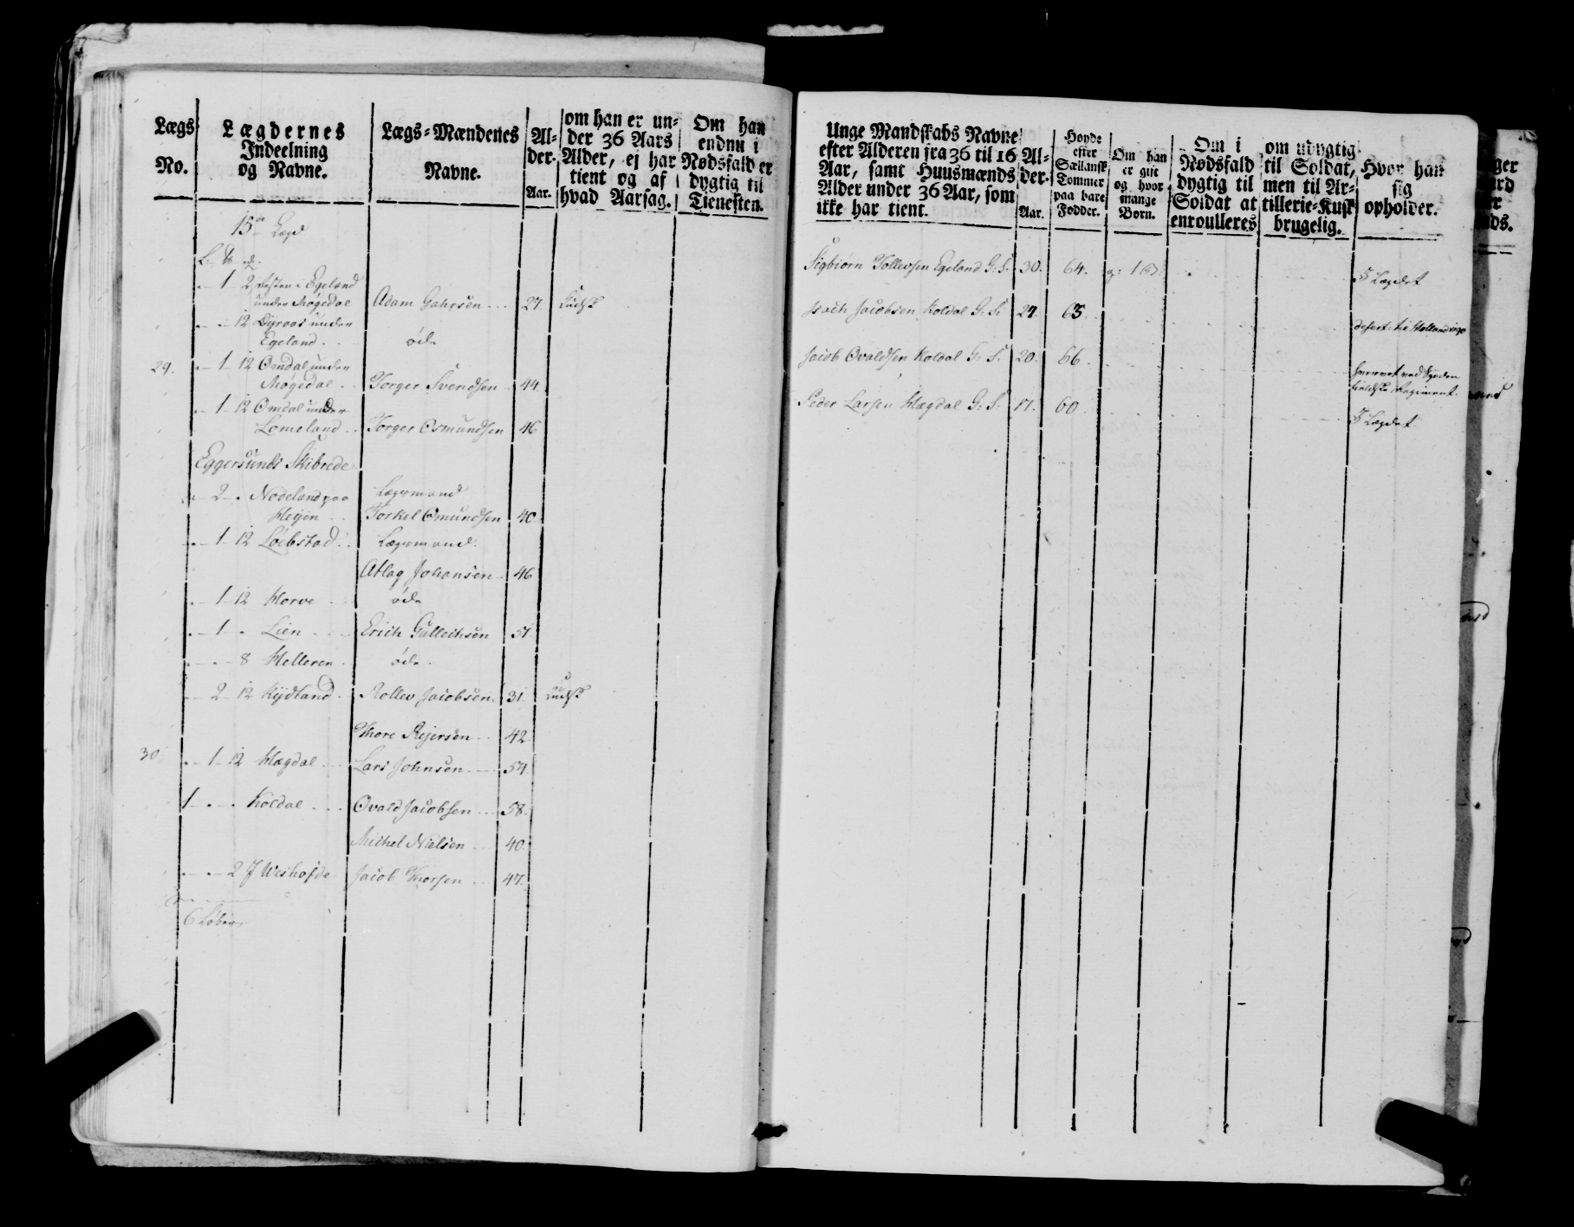 Lægs No.
Lægdernes Indeelning og Navne.
Lægs-Mændenes Navne.
Alder. Aar.
om han er under 36 Aars Alder, ej har tient og af hvad Aarsag.
Om han endnu i Nødsfald er dygtig til Tienesten.
15de Lægd
1 2 Egeland
under Møgedal
Adam Gahrsen 27
12 Dyraas under
Egeland øde
29. 1 12 Omdal under
Møgedal Torger Svendsen 44
1 12 Omdal under
Lomeland Torger Osmundsen 46
Eggersunds Skibrede
2 Nodeland paa Lægsmand
Heijen Torkel Omundsen 40
1 12 Løebstad Lægsmand
Atlag Johansen 46
1 12 Horve øde
1 Lien Erich Gulleichsen 51
8 Helleren øde
2 12 Kydland Rollev Jacobsen 31
Thore Rejersen 42
30 1 12 Hægdal Lars Johnsen 54
1 Koldal Ovald Jacobsen 58
Michel Nielsen 40
2 Jacob Thorsen 47
6 Løber
Unge Mandskabs Navne efter Alderen fra 36 til 16 Aar, samt Huusmænds Alder under 36 Aar, som ikke har tient.
Alder. Aar.
Høyde efter Sællandsk Tommer paa bare Fødder.
Om han er gift og hvor mange Børn.
Om i Nødsfald dygtig til Soldat at enroulleres
om udygtig til Soldat, men til Artillerie-Kusk brugelig.
Hvor han sig opholder.
Sigbiørn Tollevsen Egeland G: S. 30. 64. g: 1 i Lægdet
Isach Jacobsen Koldal G: S. 24 63 desert: til Holland
Jacob Ovaldsen Koldal G: S. 20. 66 hvervet ved
Regiment.
Peder Larsen Hægdal G: S. 17. 60 i Lægdet